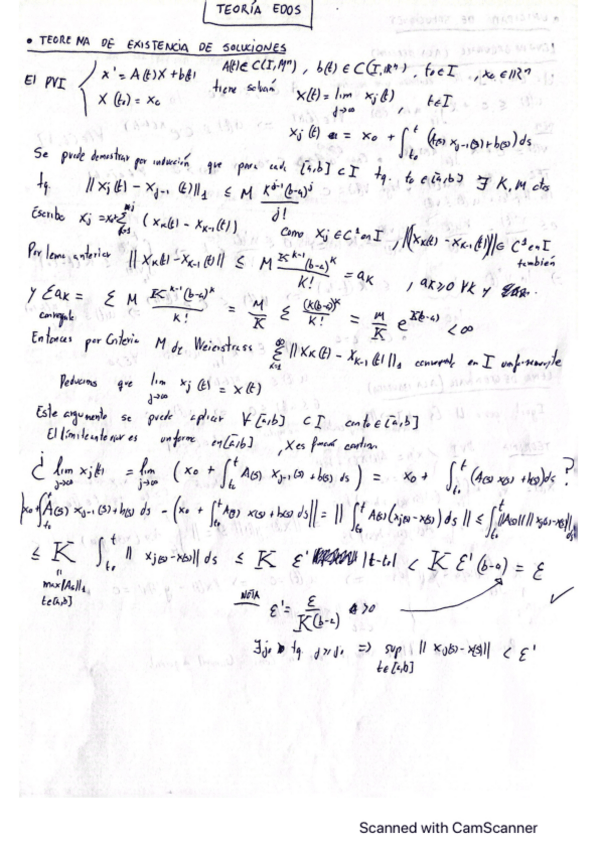 TEORÍA EDOS
• TEOREMA DE EXISTENCIA DE SOLUCIONES
El PVI { x' = A(t)X + b(t) A(t) ∈ C(I, Mⁿ), b(t) ∈ C(I, ℝⁿ), t₀ ∈ I, x₀ ∈ ℝⁿ
X(t₀) = x₀ tiene solución X(t) = lim_{j→∞} xⱼ(t), t ∈ I
xⱼ(t) = x₀ + ∫_{t₀}^{t} (A(s) xⱼ₋₁(s) + b(s)) ds
Se puede demostrar por inducción que para cada [a,b] ⊂ I tq. t₀ ∈ [a,b] ∃ K, M ctes
tq. ||Xⱼ(t) - Xⱼ₋₁(t)||₁ ≤ M K^{j-1}(b-a)^j / j!
Escribo Xⱼ = x₀ + Σ (X_K(t) - X_{K-1}(t)) Como Xⱼ ∈ C¹ en I, ||X_K(t) - X_{K-1}(t)|| ∈ C¹ en I también
Por lema anterior ||X_K(t) - X_{K-1}(t)|| ≤ M K^{k-1}(b-a)^k / K! = a_K, a_K ≥ 0 ∀K y
y Σ a_K = Σ M K^{k-1}(b-a)^k / K! = M/K Σ (K(b-a))^k / K! = M/K e^{K(b-a)} < ∞
converge
Entonces por Criterio M de Weierstrass Σ_{k=1}^{∞} ||X_K(t) - X_{K-1}(t)||₁ converge en I uniformemente
Deducimos que lim_{j→∞} xⱼ(t) = x(t)
Este argumento se puede aplicar ∀ [a,b] ⊂ I con t₀ ∈ [a,b]
El límite anterior es uniforme en [a,b], X es función continua
¿ lim_{j→∞} xⱼ(t) = lim_{j→∞} (x₀ + ∫_{t₀}^{t} A(s) xⱼ₋₁(s) + b(s) ds) = x₀ + ∫_{t₀}^{t} (A(s) x(s) + b(s)) ds ?
||x₀ + ∫_{t₀}^{t} A(s) xⱼ₋₁(s) + b(s) ds - (x₀ + ∫_{t₀}^{t} A(s) x(s) + b(s) ds)|| = ||∫_{t₀}^{t} A(s)(xⱼ(s) - x(s)) ds|| ≤ ∫_{t₀}^{t} ||A(s)|| ||xⱼ(s) - x(s)|| ds
≤ K ∫_{t₀}^{t} ||xⱼ(s) - x(s)|| ds ≤ K ε' |t - t₀| < K ε' (b-a) = ε
max||A(s)||₁
t∈[a,b]
NOTA ε' = ε / K(b-a) > 0 ✓
∃ j₀ tq. j ≥ j₀ ⇒ sup_{t∈[a,b]} ||xⱼ(s) - x(s)|| < ε'
Scanned with CamScanner